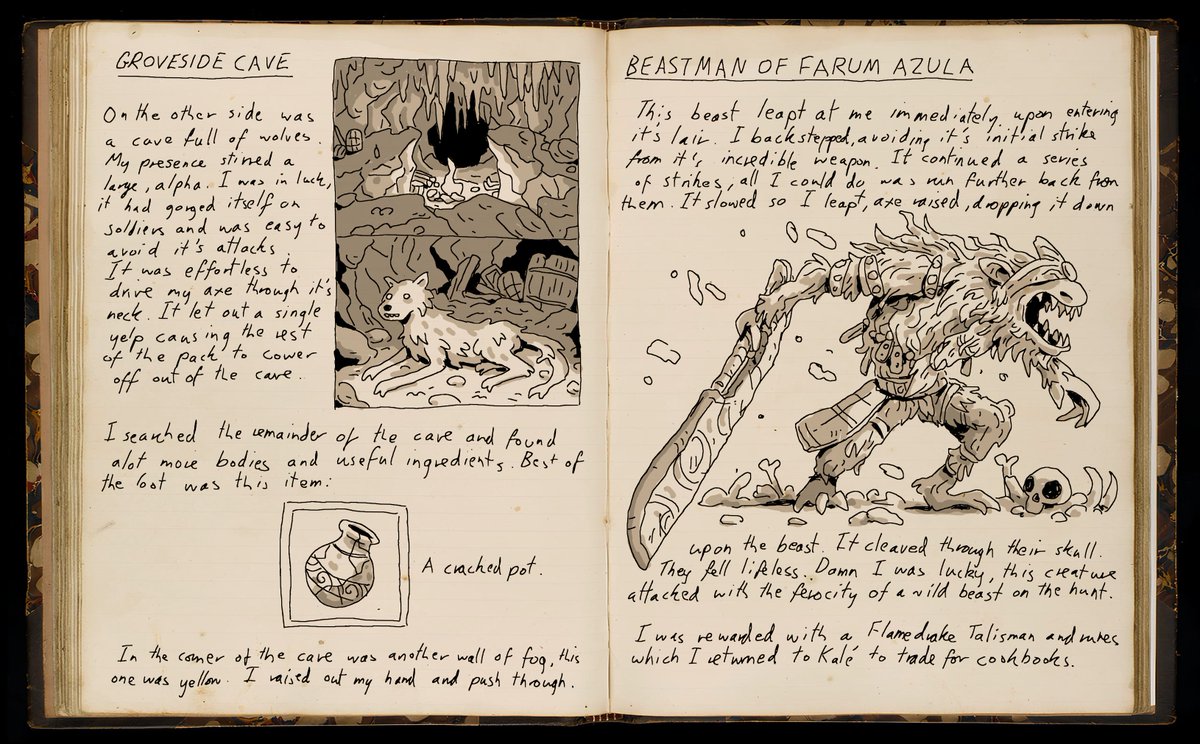 GROVESIDE CAVE
On the other side was
a cave full of wolves.
My presence stirred a
large, alpha. I was in luck,
it had gorged itself on
soldiers and was easy to
avoid it's attacks.
It was effortless to
drive my axe through it's
neck. It let out a single
yelp causing the rest
of the pack to cower
off out of the cave.
I searched the remainder of the cave and found
alot more bodies and useful ingredients. Best of
the loot was this item:
A cracked pot.
In the corner of the cave was another wall of fog, this
one was yellow. I raised out my hand and push through.
BEASTMAN OF FARUM AZULA
This beast leapt at me immediately upon entering
it's lair. I backstepped, avoiding it's initial strike
from it's incredible weapon. It continued a series
of strikes, all I could do was run further back from
them. It slowed so I leapt, axe raised, dropping it down
upon the beast. It cleaved through their skull.
They fell lifeless. Damn I was lucky, this creature
attacked with the ferocity of a wild beast on the hunt.
I was rewarded with a Flamedrake Talisman and runes
which I returned to Kalé to trade for cookbooks.